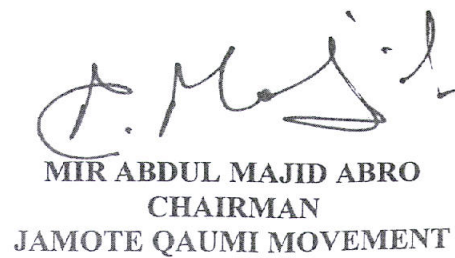 MIR ABDUL MAJID ABRO
CHAIRMAN
JAMOTE QAUMI MOVEMENT